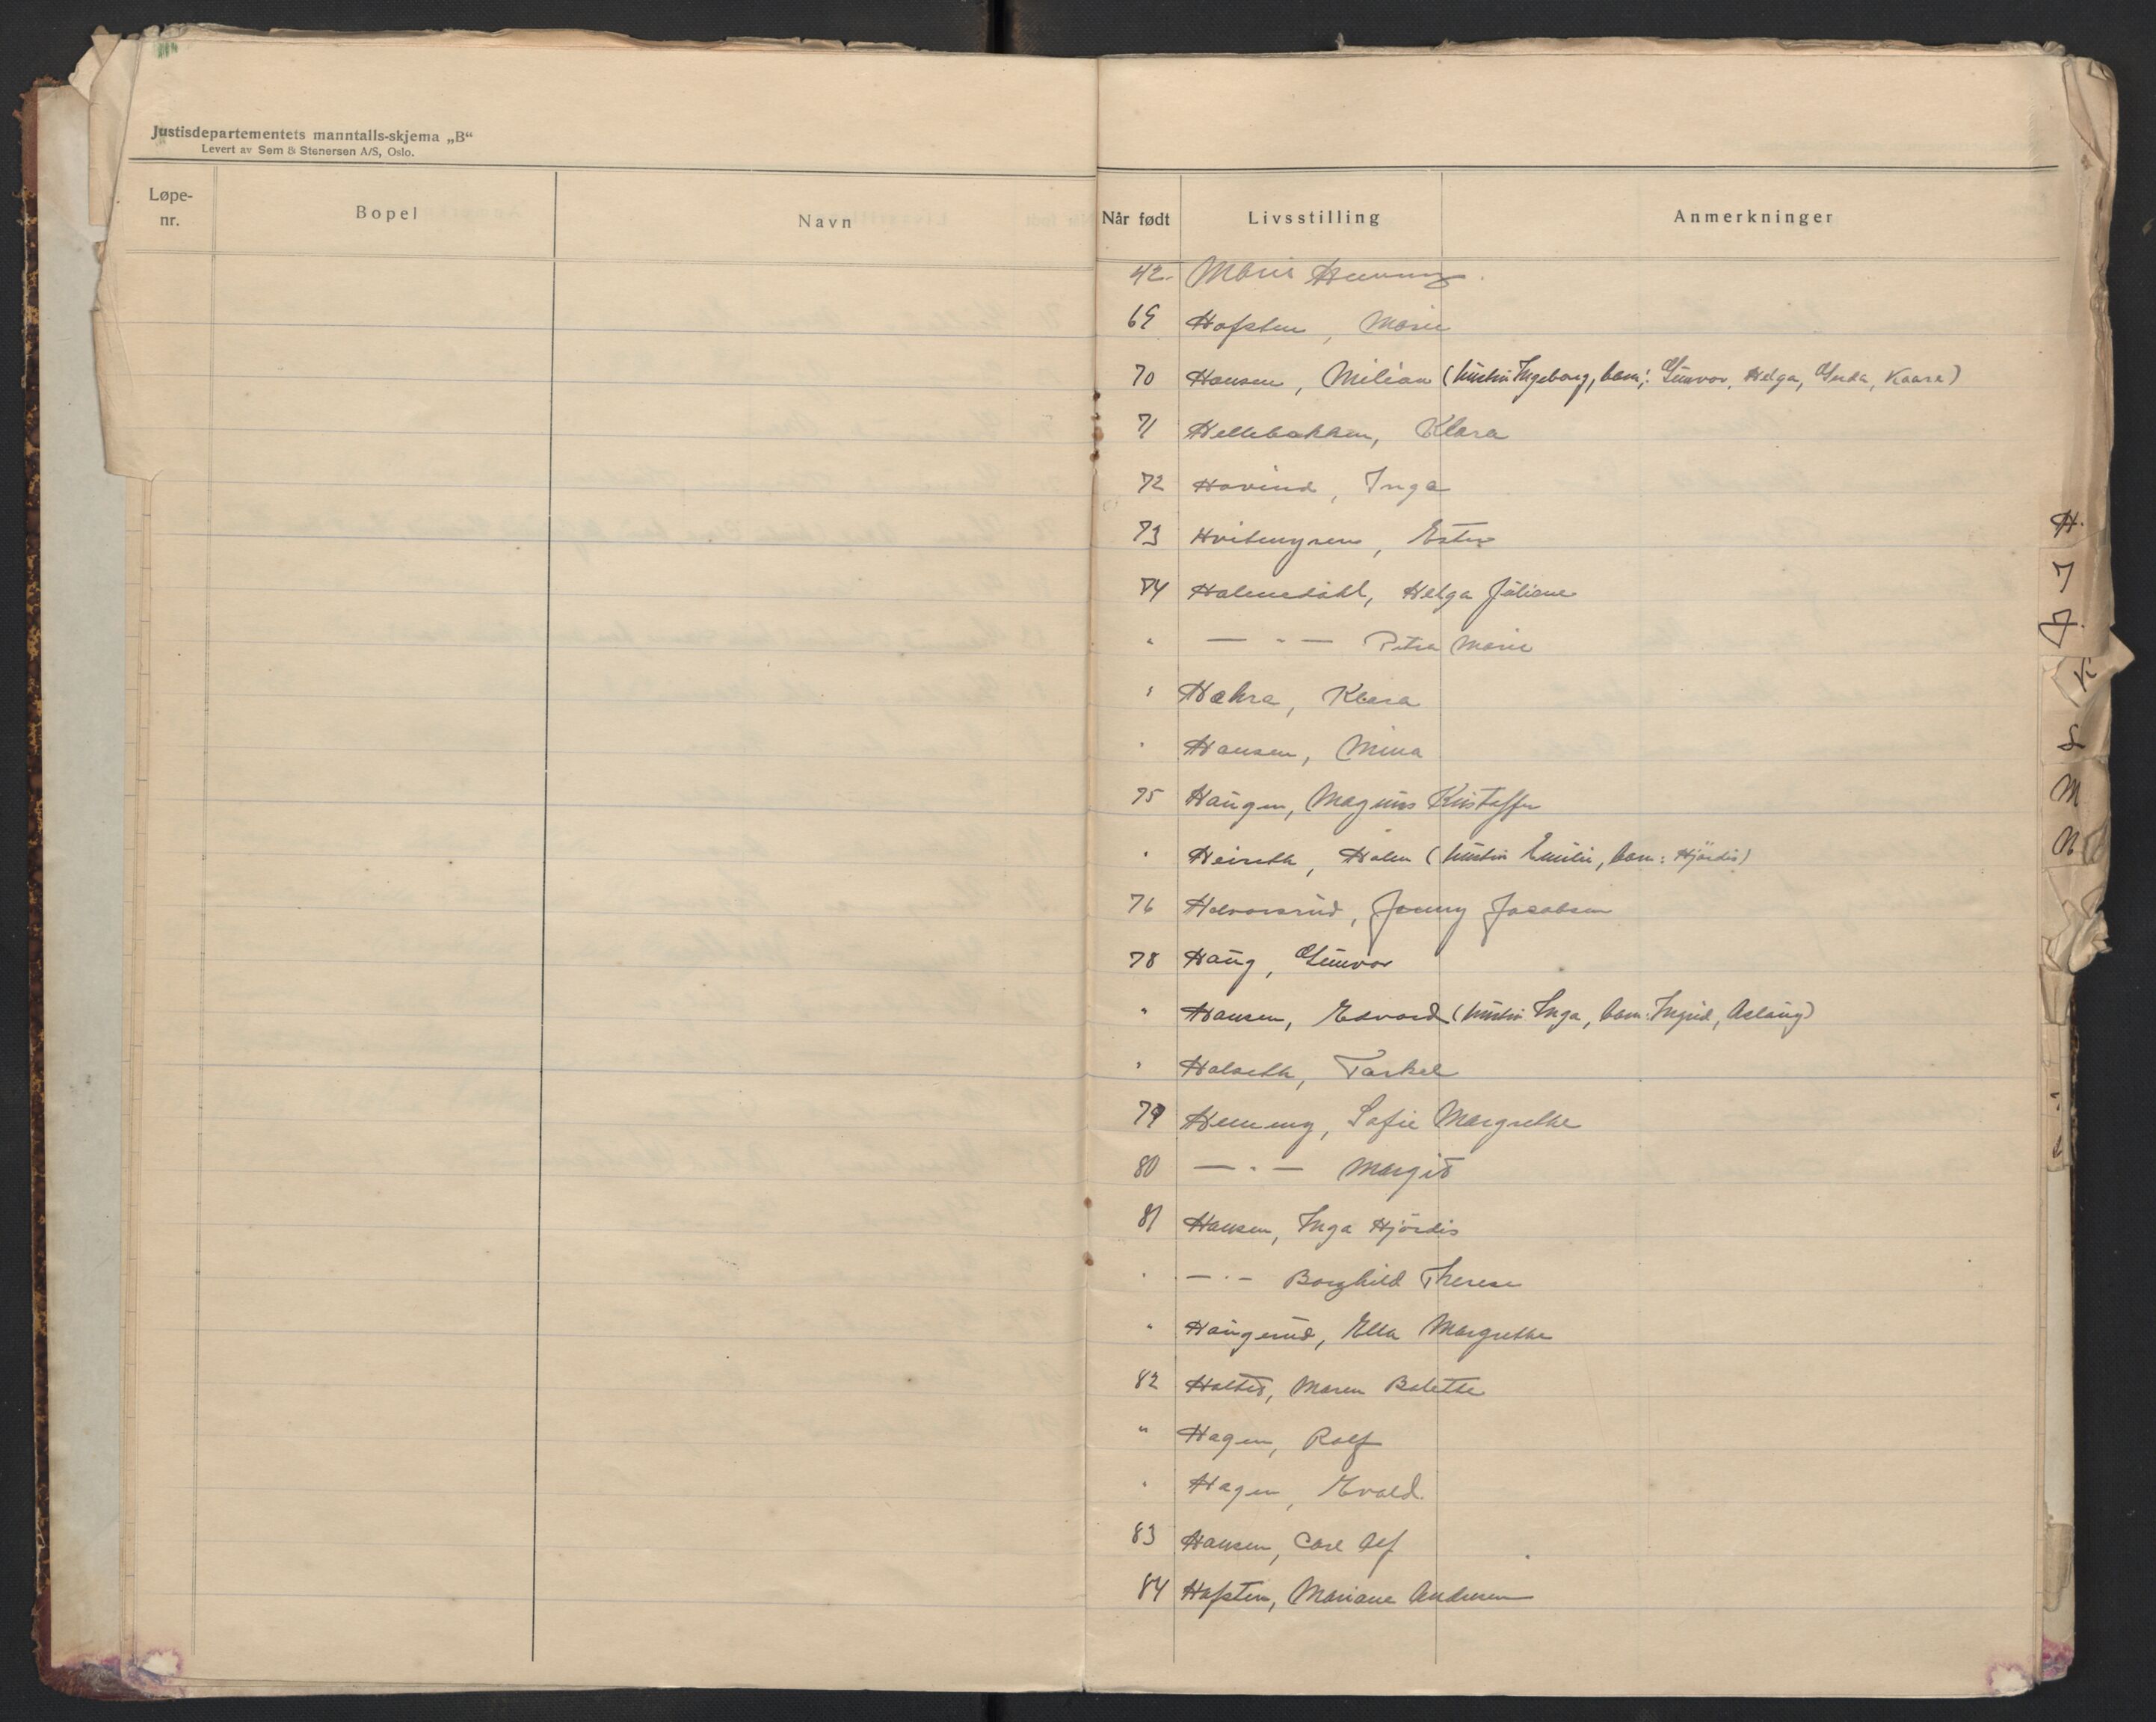 Justisdepartementets manntalls-skjema „B“
Levert av Sem & Stenersen A/S, Oslo.
Løpe-
nr.
Bopel
Navn
Når født
Livsstilling
Anmerkninger
42. Marie
69 Hofsten, Marie
70 Hansen, Milian (hustru Ingeborg, barn: Gunvor, Helga, Gerda, Kaare)
71 Hellebakken, Klara
72 Hovind, Inga
73 Hvitmyren, Ester
74 Halmedahl, Helga Juliane
" — " — Petra Marie
" Hakra, Klara
" Hansen, Mina
75 Haugen, Magnus Kristoffer
" Heiseth, Halen (hustru Emilie, barn: Hjördis)
76 Halvorsrud, Jenny Jacobsen
78 Haug, Gunvor
" Hansen, Edvard (hustru Inga, barn: Ingrid, Aslaug)
" Halseth, Torkel
79 Hemmy, Sofie Margrethe
80 — " — Margit
81 Hansen, Inga Hjördis
" — " — Borghild Therese
" Haugerud, Ella Margrethe
82 Holted, Maren Bolette
" Hagen, Rolf
" Hagen, Evald.
83 Hansen, Carl Alf
84 Hofsten, Mariane Andersen
H.
I
J.
K
L
M
N